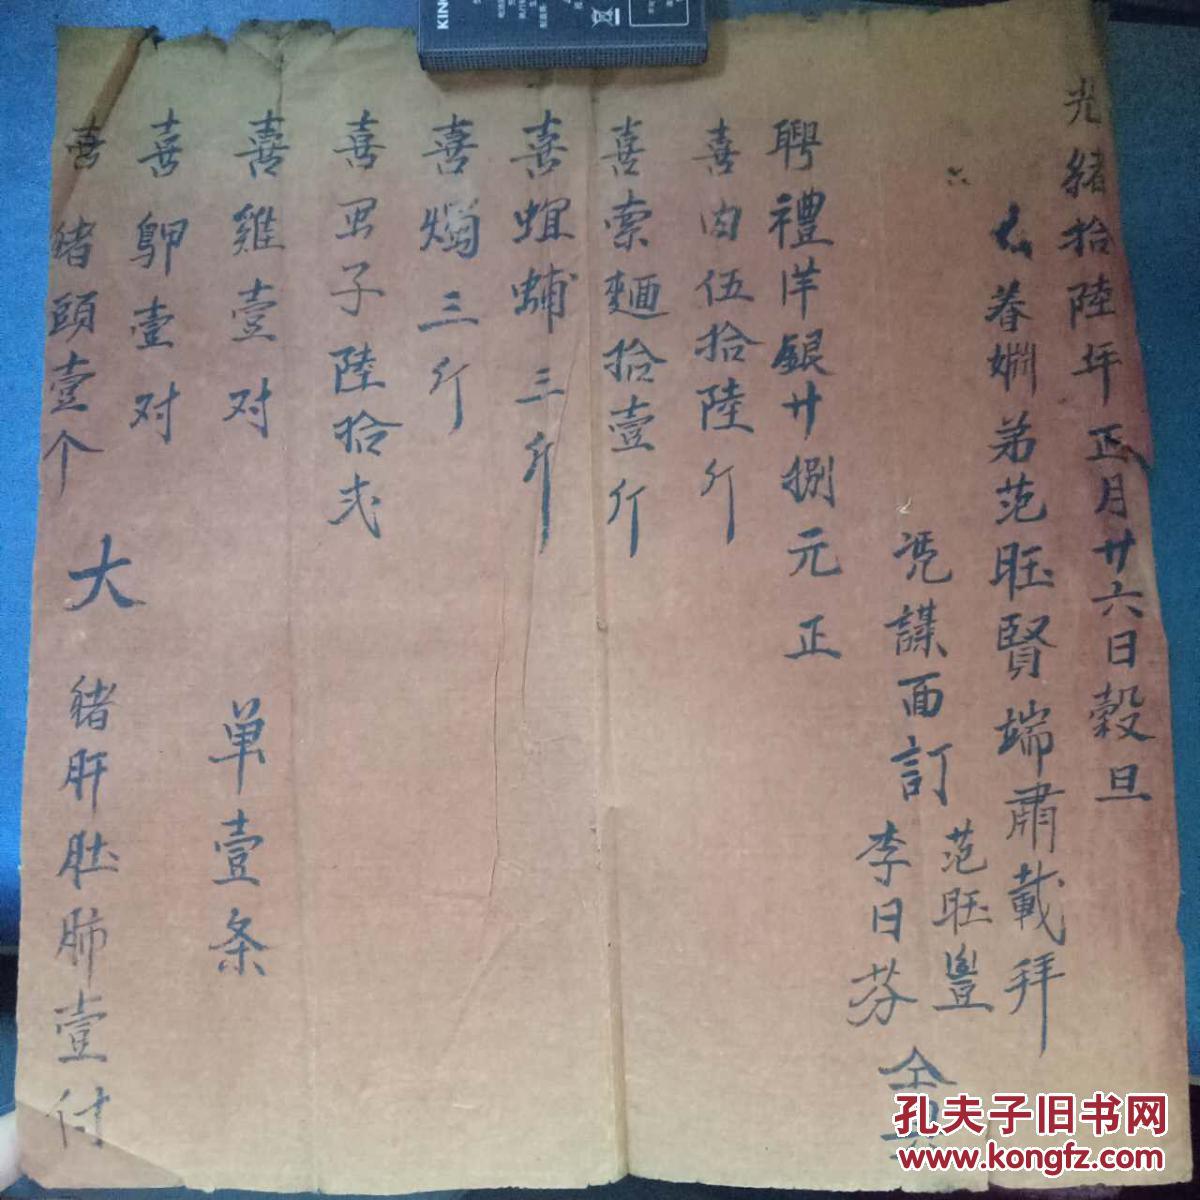 光緒拾陸年正月廿六日穀旦
眷姻弟范旺賢端肅載拜
凭謀面訂
范旺豊
李日芬
仝具
聘禮洋銀廿捌元正
喜肉伍拾陸斤
喜索麵拾壹斤
喜蛆蜅三斤
喜燭三斤
喜蛋子陸拾弍
喜雞壹对
单壹条
喜鴨壹对
喜猪頭壹个
大
猪肝肚肺壹付
KIN
孔夫子旧书网
www.kongfz.com